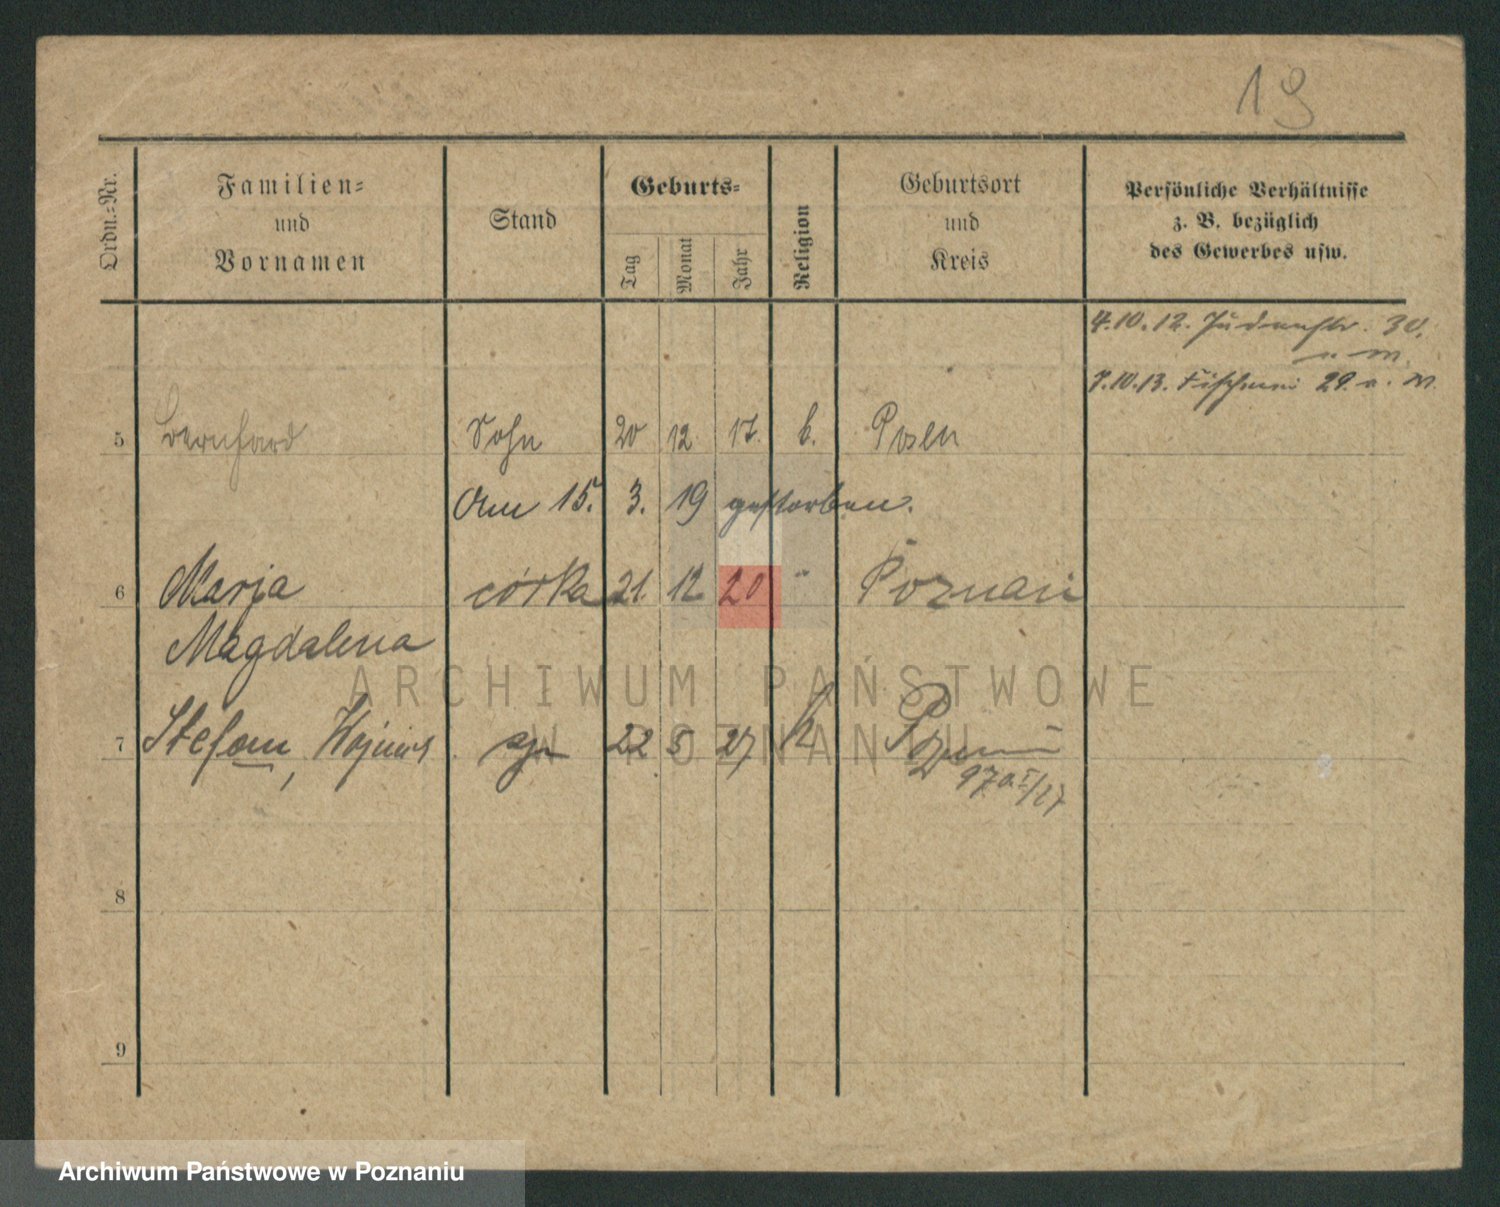 19
Ordn.-Nr.
Familien-
und
Vornamen
Stand
Geburts-
Tag
Monat
Jahr
Religion
Geburtsort
und
Kreis
Persönliche Verhältnisse
z. B. bezüglich
des Gewerbes usw.
4.10.12. Judenstr. 30.
7.10.13. Fischerei 29.
5 Bernhard Sohn 20 12 17. k. Posen
Am 15. 3. 19 gestorben.
6 Marja córka 21. 12 20 " Poznań
Magdalena
ARCHIWUM PAŃSTWOWE
W POZNANIU
7 Stefan, syn 22 5 27 k Poznań
8
9
Archiwum Państwowe w Poznaniu